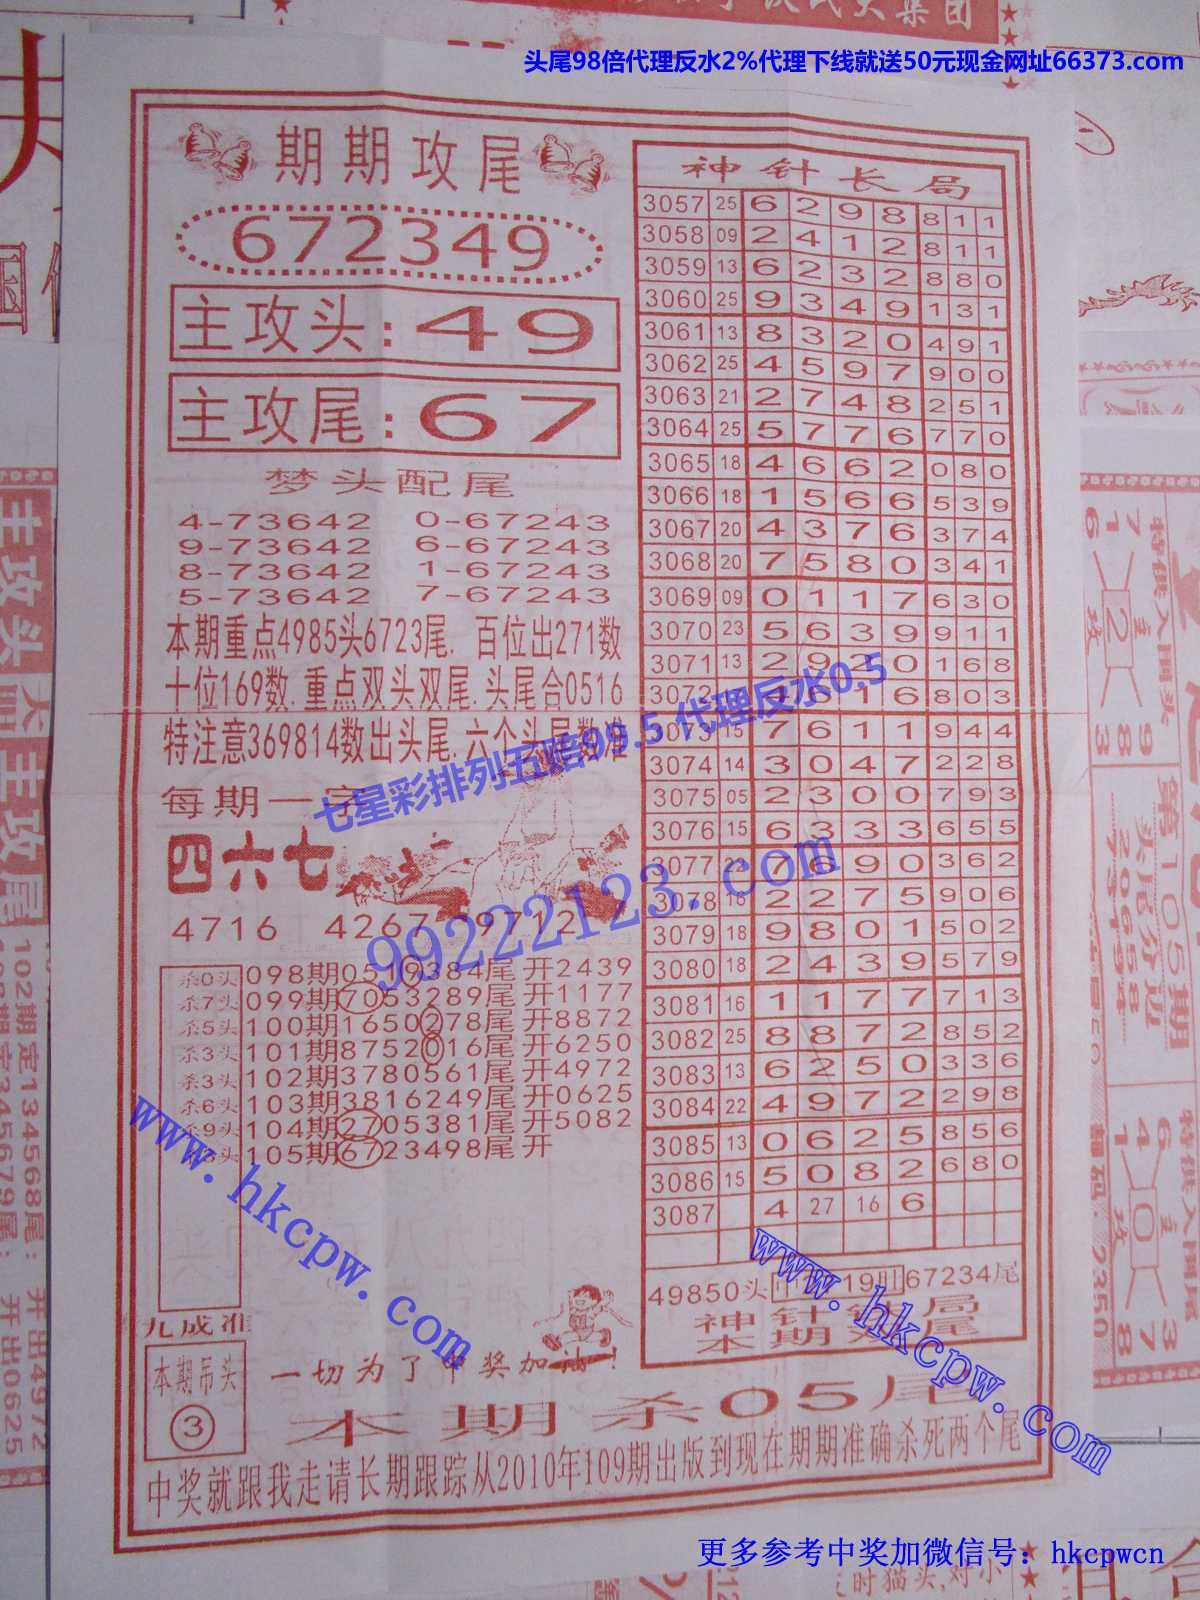 头尾98倍代理反水2%代理下线就送50元现金网址66373.com
期期攻尾
672349
主攻头:49
主攻尾:67
梦头配尾
4-73642 0-67243
9-73642 6-67243
8-73642 1-67243
5-73642 7-67243
本期重点4985头6723尾. 百位出271数
十位169数.重点双头双尾.头尾合0516
特注意369814数出头尾.六个头尾数准
七星彩排列五赔99.5 代理反水0.5
每期一字
四六七
4716 4267 9712
99222123.com
杀0头 098期0519384尾 开2439
杀7头 099期7053289尾 开1177
杀5头 100期1650278尾 开8872
杀3头 101期8752016尾 开6250
杀3头 102期3780561尾 开4972
杀6头 103期3816249尾 开0625
杀9头 104期2705381尾 开5082
105期6723498尾 开
www.hkcpw.com
九成准
本期吊头
③
一切为了中奖加油!
神针长局
3057 25 6 2 9 8 8 1 1
3058 09 2 4 1 2 8 1 1
3059 13 6 2 3 2 8 8 0
3060 25 9 3 4 9 1 3 1
3061 13 8 3 2 0 4 9 1
3062 25 4 5 9 7 9 0 0
3063 21 2 7 4 8 2 5 1
3064 25 5 7 7 6 7 7 0
3065 18 4 6 6 2 0 8 0
3066 18 1 5 6 6 5 3 9
3067 20 4 3 7 6 3 7 4
3068 20 7 5 8 0 3 4 1
3069 09 0 1 1 7 6 3 0
3070 23 5 6 3 9 9 1 1
3071 13 2 9 2 0 1 6 8
3072 4 6 1 6 8 0 3
3073 15 7 6 1 1 9 4 4
3074 14 3 0 4 7 2 2 8
3075 05 2 3 0 0 7 9 3
3076 15 6 3 3 3 6 5 5
3077 22 7 6 9 0 3 6 2
3078 16 2 2 7 5 9 0 6
3079 18 9 8 0 1 5 0 2
3080 18 2 4 3 9 5 7 9
3081 16 1 1 7 7 7 1 3
3082 25 8 8 7 2 8 5 2
3083 13 6 2 5 0 3 3 6
3084 22 4 9 7 2 2 9 8
3085 13 0 6 2 5 8 5 6
3086 15 5 0 8 2 6 8 0
3087 4 27 16 6
49850头 19 67234尾
神针 局
本期 尾
www.hkcpw.com
本期杀05尾
中奖就跟我走请长期跟踪从2010年109期出版到现在期期准确杀死两个尾
更多参考中奖加微信号：hkcpwcn
主攻头
主攻尾
102期定134568尾: 开出4972
103期定345679尾: 开出0625
第105期
头尾分边
20658
73194